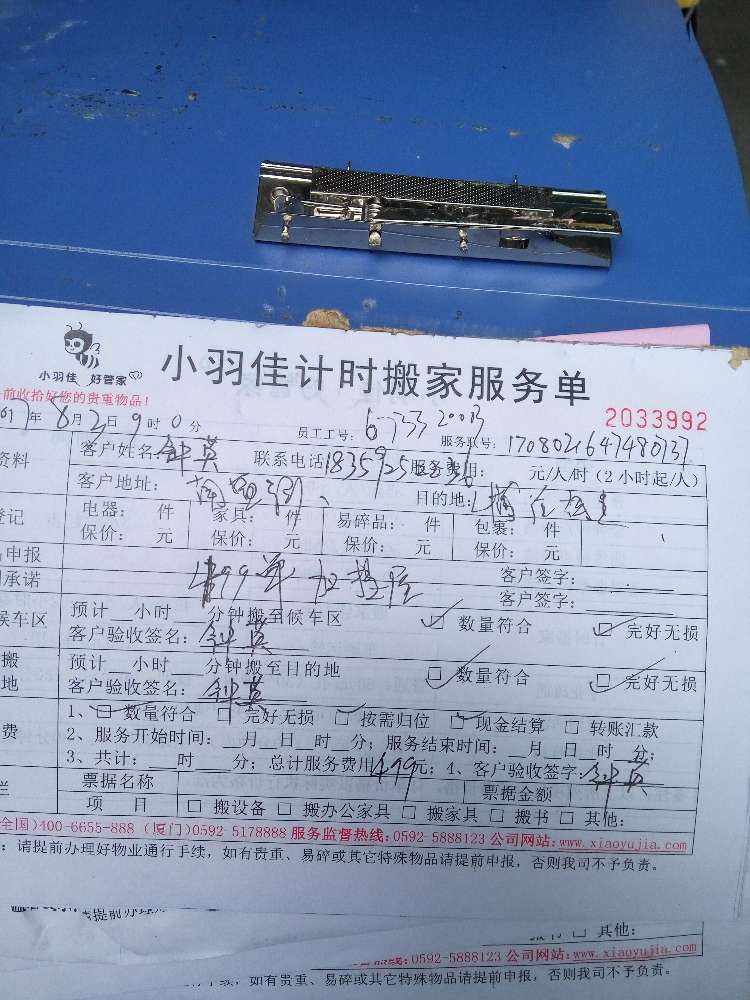 小羽佳 好管家
小羽佳计时搬家服务单
前收拾好您的贵重物品！
2033992
年8月2日9时0分 员工工号： 服务联号：
资料 客户姓名：钟英 联系电话 服务费用： 元/人/时（2小时起/人）
客户地址： 目的地：
登记 电器： 件 家具： 件 易碎品： 件 包裹： 件
保价： 元 保价： 元 保价： 元 保价： 元
申报 客户签字：
承诺 499单 客户签字：
候车区 预计__小时__分钟搬至候车区 □ 数量符合 □ 完好无损
客户验收签名：钟英
搬 预计__小时__分钟搬至目的地 □ 数量符合 □ 完好无损
地 客户验收签名：钟英
1、□ 数量符合 □ 完好无损 □ 按需归位 □ 现金结算 □ 转账汇款
费 2、服务开始时间：__月__日__时__分；服务结束时间：__月__日__时__分；
3、共计：__时__分；总计服务费用499元；4、客户验收签字：钟英
栏 票据名称 票据金额
项 目 □ 搬设备 □ 搬办公家具 □ 搬家具 □ 搬书 □ 其他：
全国)400-6655-888 (厦门)0592-5178888 服务监督热线：0592-5888123 公司网站：www.xiaoyujia.com
：请提前办理好物业通行手续，如有贵重、易碎或其它特殊物品请提前申报，否则我司不予负责。
提前办理
其他：
：0592-5888123 公司网站：www.xiaoyujia.com
手续，如有贵重、易碎或其它特殊物品请提前申报，否则我司不予负责。